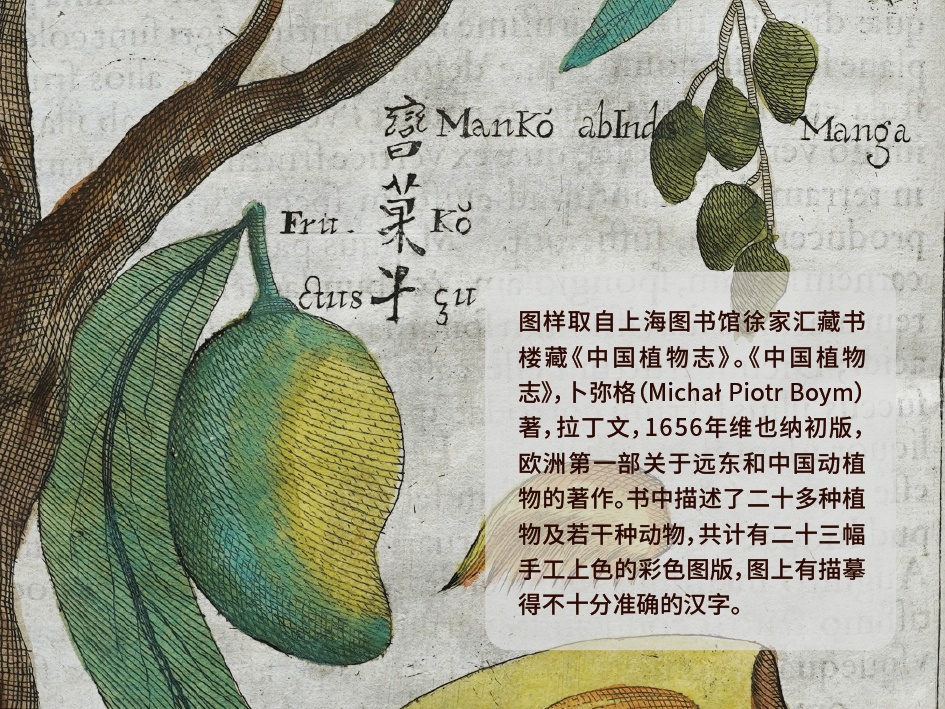 蠻 Mankó abInd Manga
Fru. 菓 Kŏ
ctus 子 çu
图样取自上海图书馆徐家汇藏书
楼藏《中国植物志》。《中国植物
志》，卜弥格（Michał Piotr Boym）
著，拉丁文，1656年维也纳初版，
欧洲第一部关于远东和中国动植
物的著作。书中描述了二十多种植
物及若干种动物，共计有二十三幅
手工上色的彩色图版，图上有描摹
得不十分准确的汉字。